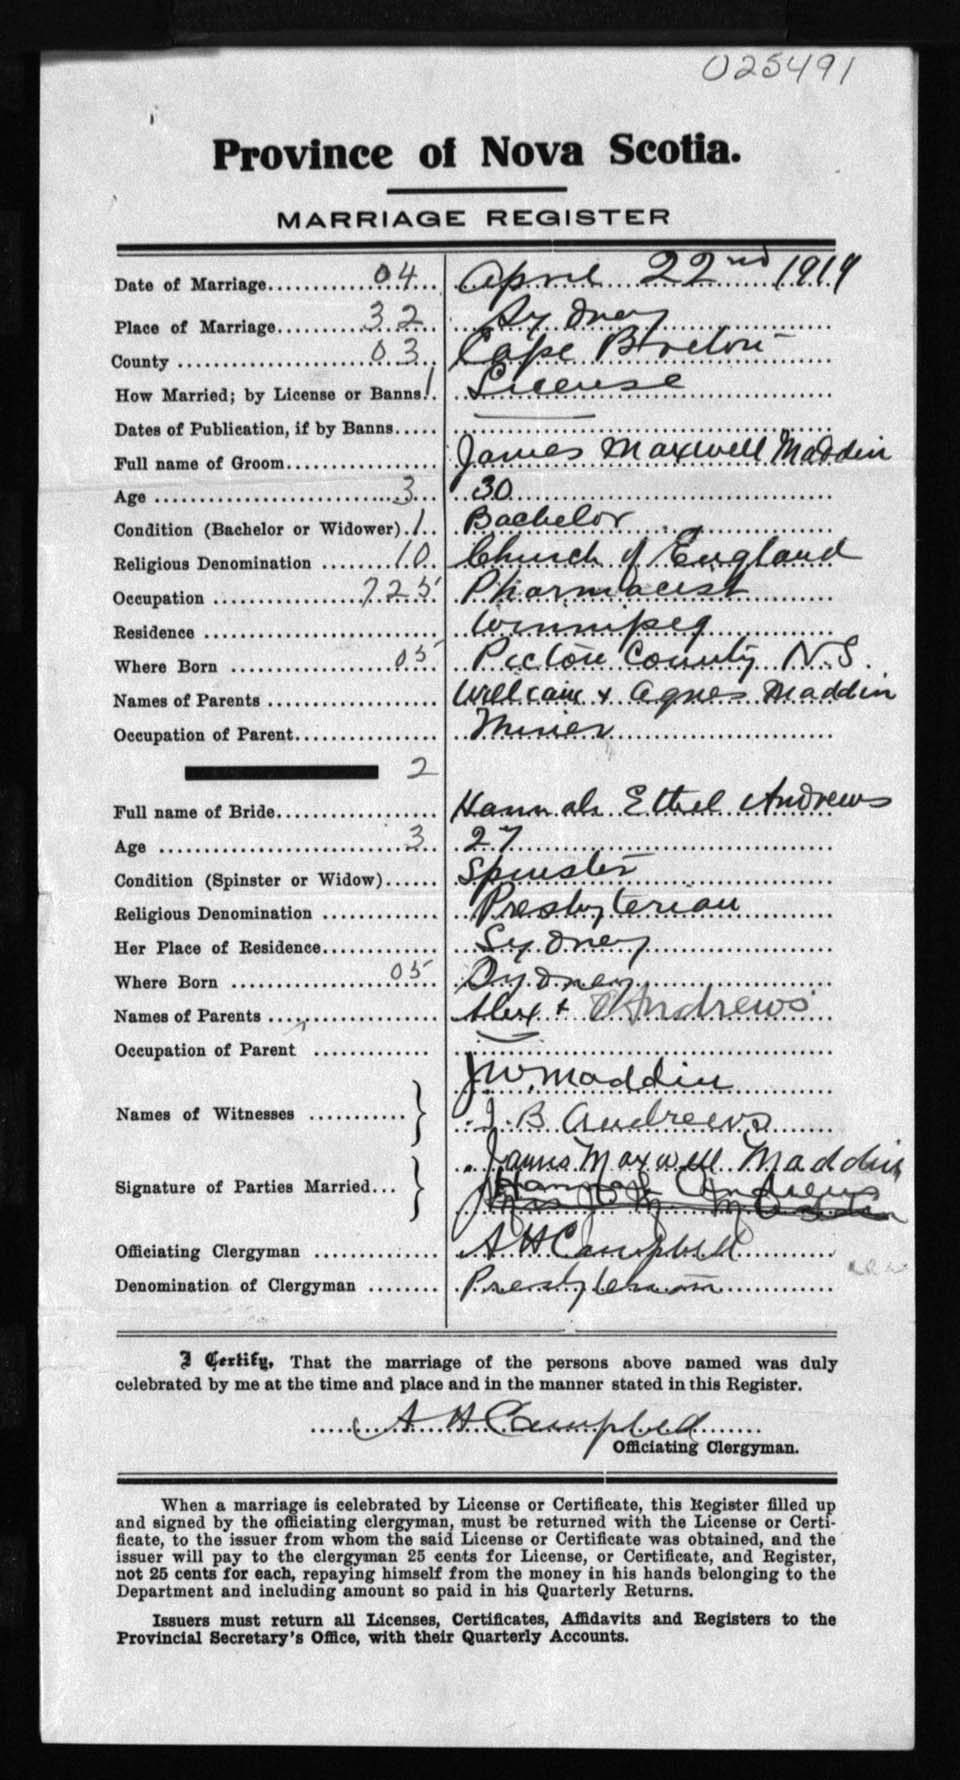 025491
Province of Nova Scotia.
MARRIAGE REGISTER
Date of Marriage 04 April 22nd 1919
Place of Marriage 32 Sydney
County 03 Cape Breton
How Married; by License or Banns. 1 License
Dates of Publication, if by Banns
Full name of Groom James Maxwell Maddin
Age 3 30
Condition (Bachelor or Widower) 1 Bachelor
Religious Denomination 10 Church of England
Occupation 725 Pharmacist
Residence Winnipeg
Where Born 05 Pictou County N.S.
Names of Parents William + Agnes Maddin
Occupation of Parent Miner
2
Full name of Bride Hannah Ethel Andrews
Age 3 27
Condition (Spinster or Widow) Spinster
Religious Denomination Presbyterian
Her Place of Residence Sydney
Where Born 05 Sydney
Names of Parents Alex + Andrews
Occupation of Parent
J W Maddin
Names of Witnesses
J. B Andrews
James Maxwell Maddin
Signature of Parties Married
Hannah Andrews
Officiating Clergyman A H Campbell
Denomination of Clergyman Presbyterian
I Certify, That the marriage of the persons above named was duly
celebrated by me at the time and place and in the manner stated in this Register.
A H Campbell
Officiating Clergyman.
When a marriage is celebrated by License or Certificate, this Register filled up
and signed by the officiating clergyman, must be returned with the License or Certi-
ficate, to the issuer from whom the said License or Certificate was obtained, and the
issuer will pay to the clergyman 25 cents for License, or Certificate, and Register,
not 25 cents for each, repaying himself from the money in his hands belonging to the
Department and including amount so paid in his Quarterly Returns.
Issuers must return all Licenses, Certificates, Affidavits and Registers to the
Provincial Secretary's Office, with their Quarterly Accounts.